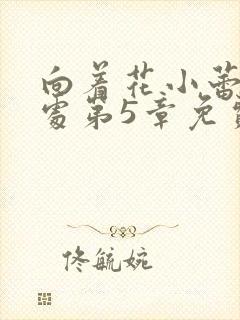 向着花小蕾
处第5章免
佟毓婉